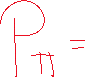 Pπ =